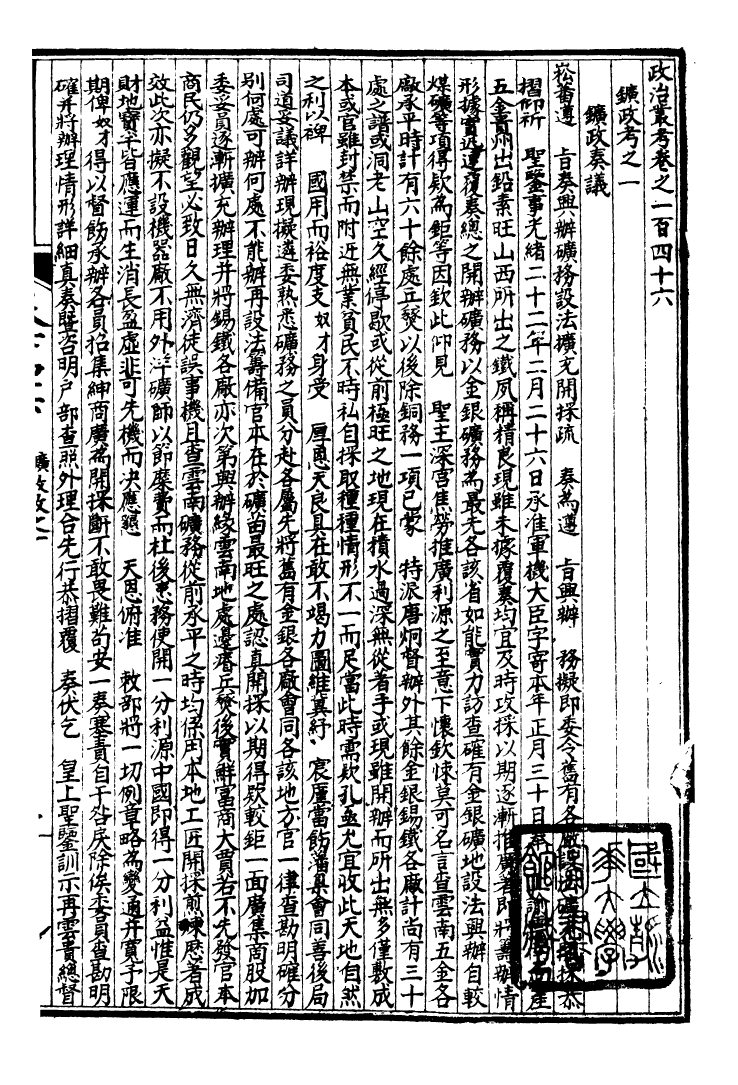 政治叢考卷之一百四十六
鑛政考之一
鑛政奏議
崧蕃遵 旨奏興辦礦務設法擴充開採疏 奏為遵 旨興辦 務擬即委令舊有各廠 恭
摺仰祈 聖鑒事光緒二十二年二月二十六日承准軍機大臣字寄本年正月三十日奉 產
五金貴州出鉛素旺山西所出之鐵夙稱精良現雖未據覆奏均宜及時攻採以期逐漸推廣著即將籌辦情
形據實迅速覆奏總之開辦礦務以金銀礦務為最先各該省如能實力訪查確有金銀礦地設法興辦自較
煤礦等項得欵為鉅等因欽此仰見 聖主深宮焦勞推廣利源之至意下懷欽悚莫可名言查雲南五金各
廠承平時計有六十餘處兵燹以後除銅務一項已蒙 特派唐炯督辦外其餘金銀錫鐵各廠計尚有三十
處之譜或洞老山空久經停歇或從前極旺之地現在積水過深無從著手或現雖開辦而所出無多僅敷成
本或官雖封禁而附近無業貧民不時私自採取種種情形不一而足當此時需欵孔亟尤宜收此天地自然
之利以裨 國用而裕度支奴才身受 厚恩天良具在敢不竭力圖維冀紓 宸廑當飭藩臬會同善後局
司道妥議詳辦現擬遴委熟悉礦務之員分赴各屬先將舊有金銀各廠會同各該地方官一律查勘明確分
別何處可辦何處不能辦再設法籌備官本在於礦苗最旺之處認真開採以期得欵較鉅一面廣集商股加
委妥員逐漸擴充辦理并將錫鐵各廠亦次第興辦緣雲南地處邊瘠兵燹後實鮮富商大賈若不先發官本
商民仍多觀望必致日久無濟徒誤事機且查雲南礦務從前承平之時均係用本地工匠開採煎煉歷著成
效此次亦擬不設機器廠不用外洋礦師以節糜費而杜後患務使開一分利源中國即得一分利益惟是天
財地寶半皆應運而生消長盈虛非可先機而決應懇 天恩俯准 敕部將一切例章略為變通并寬予限
期俾奴才得以督飭承辦各員招集紳商廣為開採斷不敢畏難苟安一奏塞責自干咎戾除俟委員查勘明
確并將辦理情形詳細具奏暨咨明戶部查照外理合先行恭摺覆 奏伏乞 皇上聖鑒訓示再雲貴總督
鑛政考之一